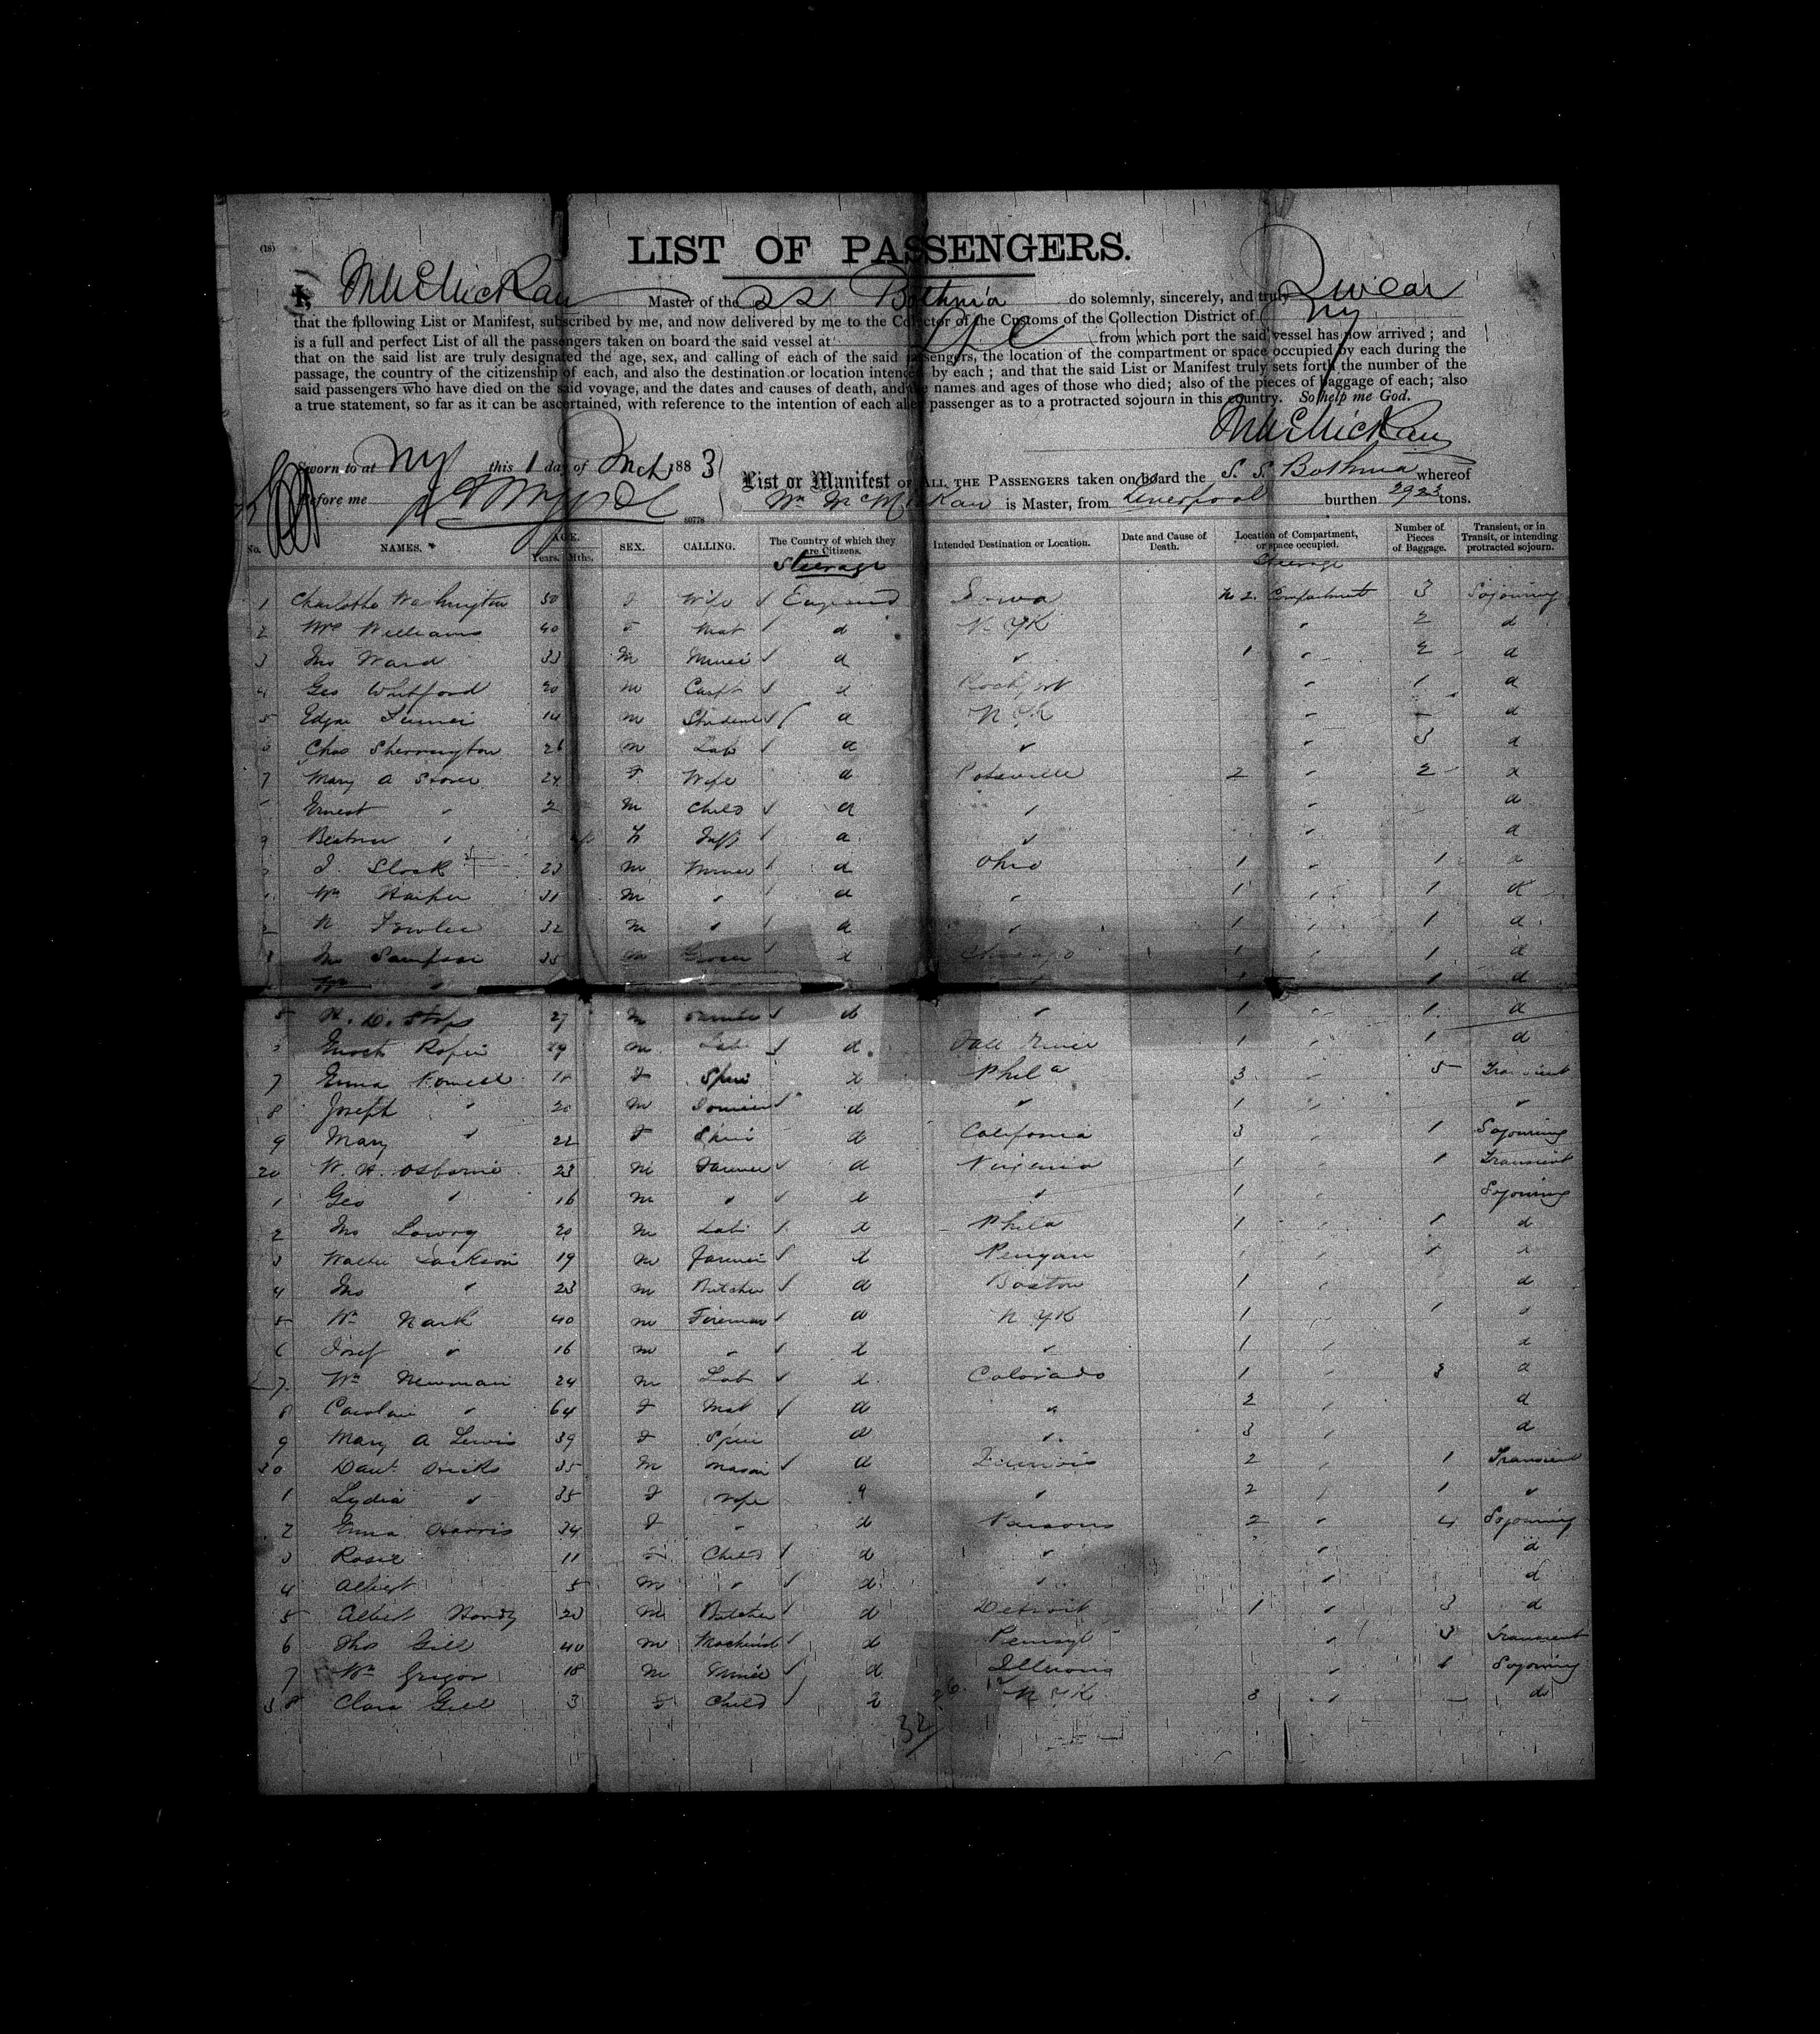 (18)
LIST OF PASSENGERS.
I, Master of the SS Bothnia do solemnly, sincerely, and truly swear
that the following List or Manifest, subscribed by me, and now delivered by me to the Collector of the Customs of the Collection District of NY
is a full and perfect List of all the passengers taken on board the said vessel at from which port the said vessel has now arrived; and
that on the said list are truly designated the age, sex, and calling of each of the said passengers, the location of the compartment or space occupied by each during the
passage, the country of the citizenship of each, and also the destination or location intended by each; and that the said List or Manifest truly sets forth the number of the
said passengers who have died on the said voyage, and the dates and causes of death, and the names and ages of those who died; also of the pieces of baggage of each; also
a true statement, so far as it can be ascertained, with reference to the intention of each alien passenger as to a protracted sojourn in this country. So help me God.
Sworn to at NY this 1 day of Mch 1883
Before me
List or Manifest OF ALL THE PASSENGERS taken on board the S. S. Bothnia whereof
Wm McMickan is Master, from Liverpool burthen 2923 tons.
No. NAMES. AGE. Years. Mths. SEX. CALLING. The Country of which they are Citizens. Intended Destination or Location. Date and Cause of Death. Location of Compartment, or space occupied. Number of Pieces of Baggage. Transient, or in Transit, or intending protracted sojourn.
Steerage Steerage
1 Charlotte Washington 50 F Wife England Iowa No 2. Compartment 3 Sojourning
2 Mrs Williams 40 F Mat d N. YK " 2 d
3 Jno Ward 33 M Miner d " 1 " 2 d
4 Geo Whitford 20 M Carpt d Rockport " 1 d
5 Edgar 14 M Student d N YK " - d
6 Chas Sherrington 26 M Lab d " " 3 d
7 Mary A Stover 24 F Wife d Potsville 2 " 2 d
Ernest " 2 M Child d " " d
9 Beatrice " F Inft d " " d
J. Slock 23 M Miner d Ohio 1 " 1 d
1 Wm Harper 31 M " d " 1 " 1 d
2 N Fowler 32 M " d " 1 " 1 d
3 Jno Sampson 35 M Grocer d Chicago 1 " 1 d
Wm " 1 d
5 27 M d " 1 " 1 d
Enoch Roper 29 M Lab d Fall River 1 " 1 d
7 Emma Powell 18 F Spin d Phila 3 " 5 Transient
8 Joseph " 20 M d " 1 " "
9 Mary " 22 F Spin d California 3 " 1 Sojourning
20 W. H. Osborne 23 M Farmer d Virginia 1 " 1 Transient
1 Geo " 16 M " d " 1 Sojourning
2 Jno Lowry 20 M Lab d Phila 1 " 1 d
3 Walter Jackson 19 M Farmer d Penyan " " 1 d
4 Jno " 23 M Butcher d Boston 1 " d
5 Wm Nark 40 M Fireman d N YK 1 " 1 d
6 Josef " 16 M " d " 1 " d
7 Wm Newman 24 M Lab d Colorado 1 " 3 d
8 Caroline " 64 F Mat d " 2 " d
9 Mary A Lewis 39 F Spin d " 3 " d
30 Danl Hicks 35 M Mason d Illinois 2 " 1 Transient
1 Lydia " 35 F Wife d " 2 " 1 "
2 Emma Harris 34 F " d Parsons 2 " 4 Sojourning
3 Rosie 11 F Child d " " d
4 Albert 5 M " d " " d
5 Albert Hardy 20 M Butcher d Detroit 1 " 3 d
6 Thos Gill 40 M Machinist d Pensyl " 3 Transient
7 Wm Grigor 18 M Miner d Illinois " 1 Sojourning
38 Clara Gill 3 F Child d N YK 3 " - d
32